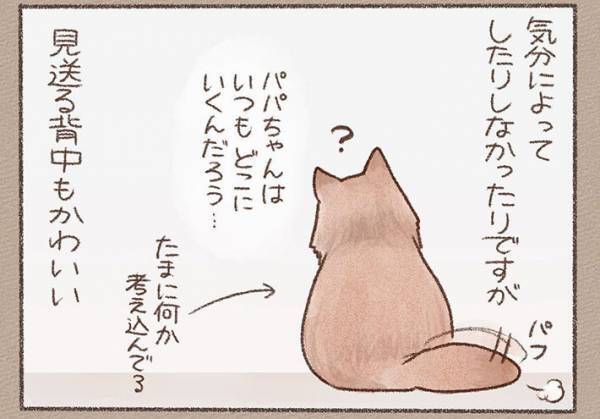 気分によって
したりしなかったりですが
?
パパちゃんは
いつもどこに
いくんだろう…
たまに何か
考え込んでる
パフ
見送る背中もかわいい